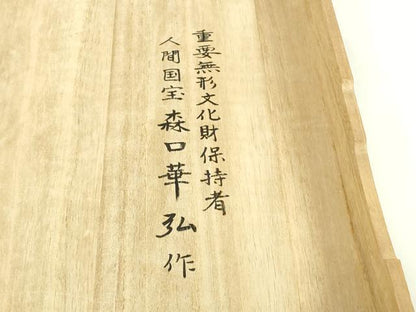 重要無形文化財保持者
人間国宝森口華弘作